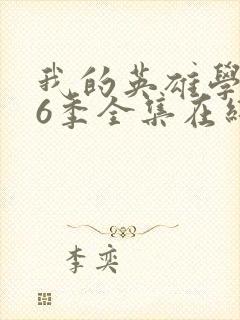 我的英雄學
6季全集在線
李奕